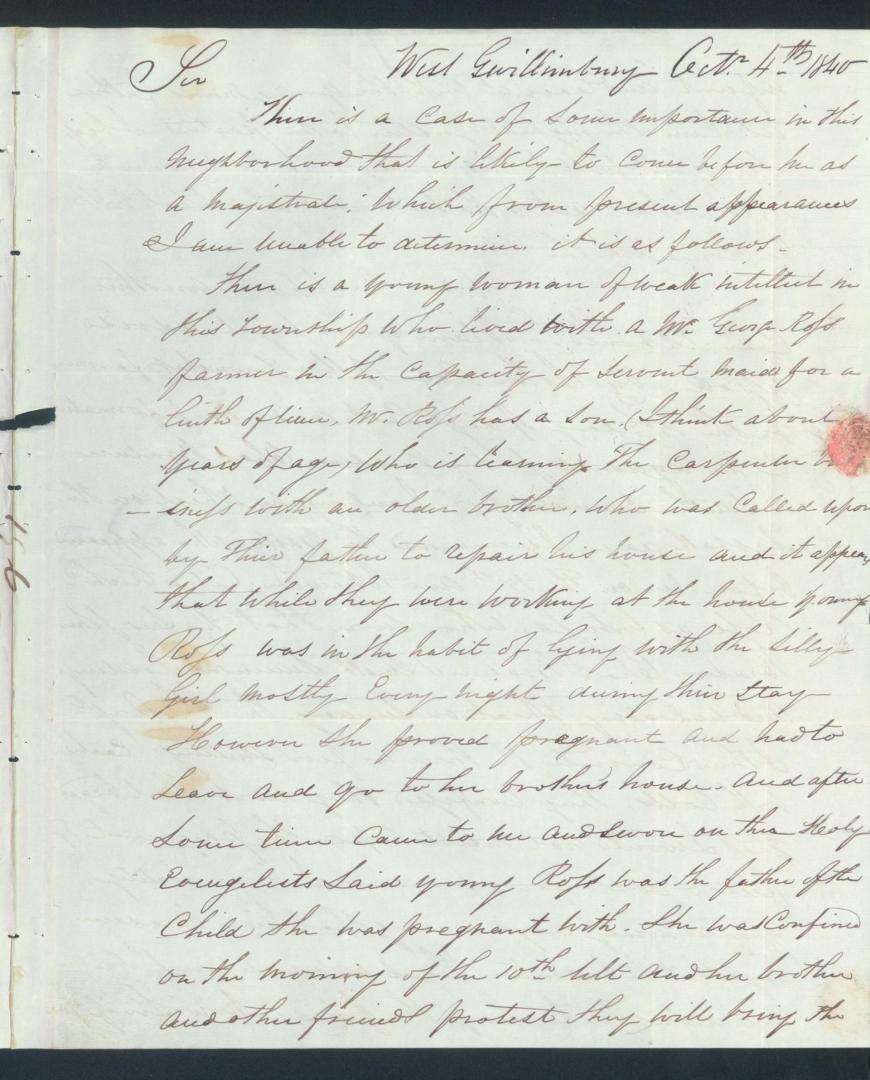 West Gwillimbury Octr. 4th 1840
Sir
There is a Case of Some importance in this
Neighborhood that is likely to Come before me as
a Majistrate; Which from present appearances
I am Unable to determine. it is as follows.
There is a young woman of weak intellect in
this Township Who lived with a Mr. George Ross
farmer in the Capacity of Servant Maid for a
linth of time, Mr. Ross has a Son (I think about
years of age, Who is learning The Carpenter
- iness with an older brother, who was Called upon
by Their father to repair his house and it appears
that while they were working at the house young
Ross was in the habit of lying with the Silly
Girl mostly Every night during their Stay
However She proved pregnant and had to
Leave and go to her brother's house. And after
Some time Came to me and Swore on the Holy
Evengelists Said young Ross was the father of the
Child She was pregnant with. She was Confined
on the morning of the 10th Ult and her brother
and other friends protest they will bring the